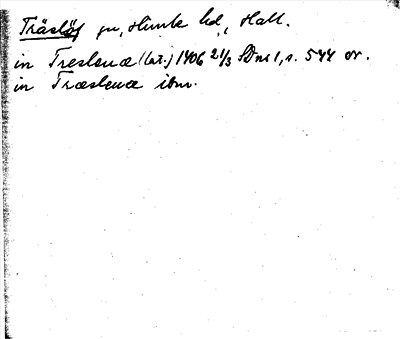 Träslöf sn, Himle hd, Hall.
in Tresleuæ (lat.) 1406 21/3 SDns 1, s. 544 or.
in Træsleuæ ibm.